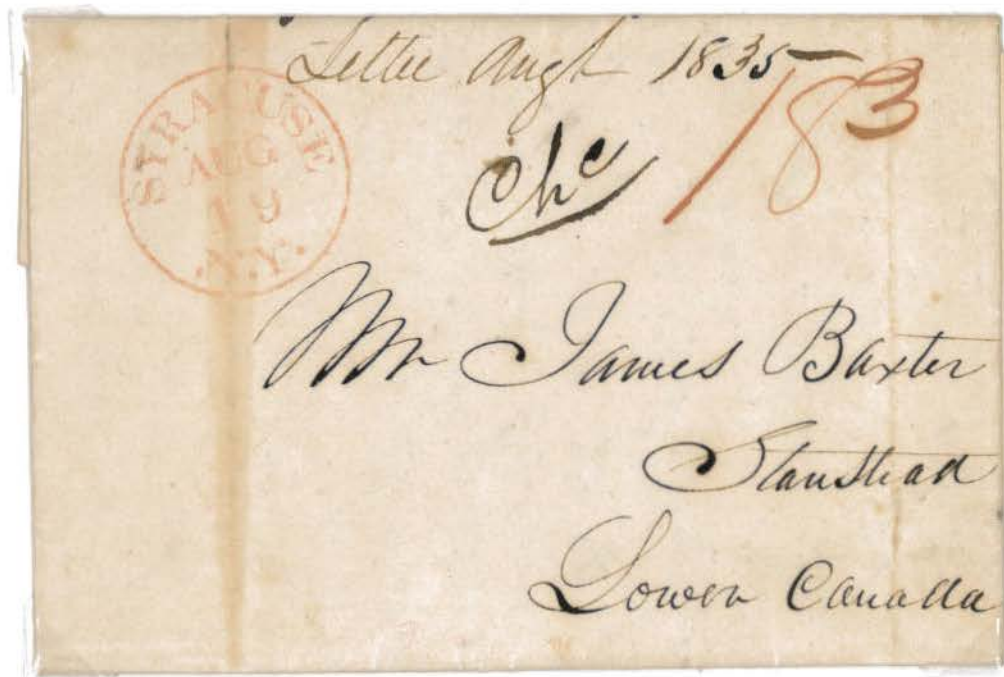 Letter Augt 1835
SYRACUSE
AUG
19
N.Y.
Chc
18 3
Mr James Baxter
Stanstead
Lower Canada